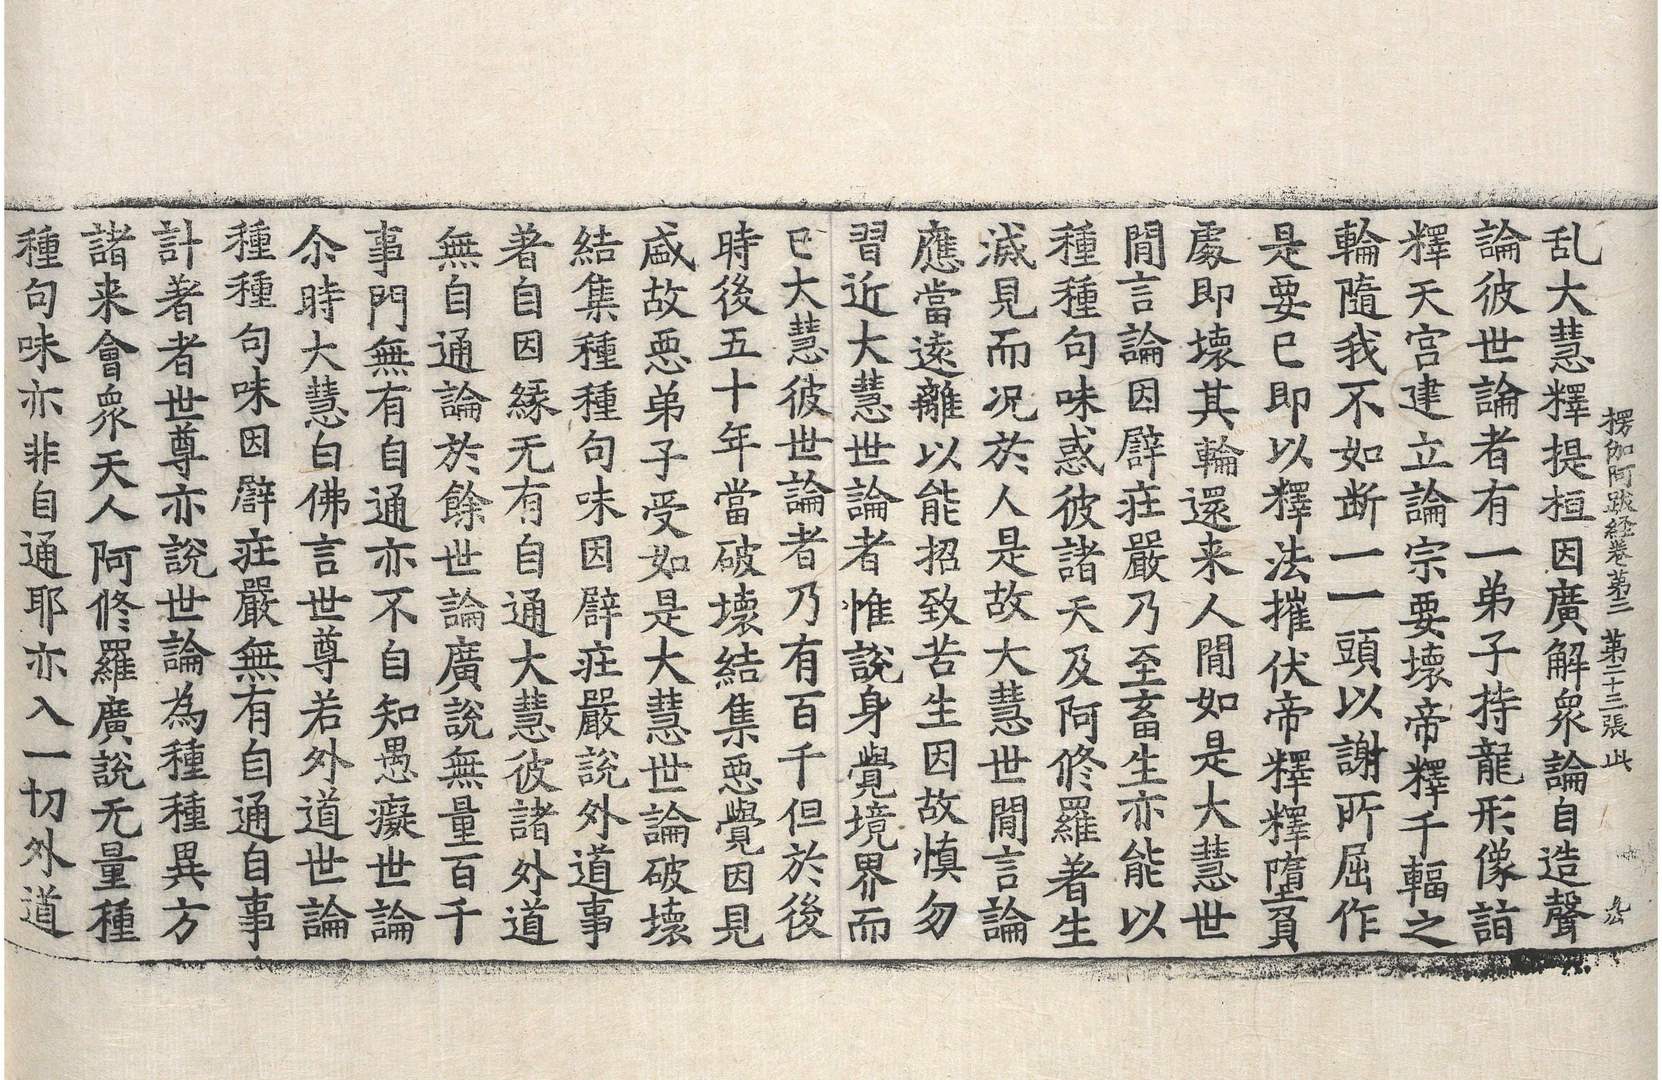 楞伽阿跋経卷苐三 苐二十三張 此
乱大慧釋提桓因廣解衆論自造聲
論彼世論者有一弟子持龍形像詣
釋天宮建立論宗要壞帝釋千輻之
輪隨我不如断一一頭以謝所屈作
是要已即以釋法摧伏帝釋釋墮負
處即壞其輪還来人間如是大慧世
間言論因辟荘嚴乃至畜生亦能以
種種句味惑彼諸天及阿修羅著生
滅見而况於人是故大慧世間言論
應當遠離以能招致苦生因故慎勿
習近大慧世論者惟說身覺境界而
已大慧彼世論者乃有百千但於後
時後五十年當破壞結集惡覺因見
盛故惡弟子受如是大慧世論破壞
結集種種句味因辟荘嚴說外道事
著自因縁无有自通大慧彼諸外道
無自通論於餘世論廣說無量百千
事門無有自通亦不自知愚癡世論
尒時大慧白佛言世尊若外道世論
種種句味因辟荘嚴無有自通自事
計著者世尊亦說世論為種種異方
諸来會衆天人阿修羅廣說无量種
種句味亦非自通耶亦入一切外道